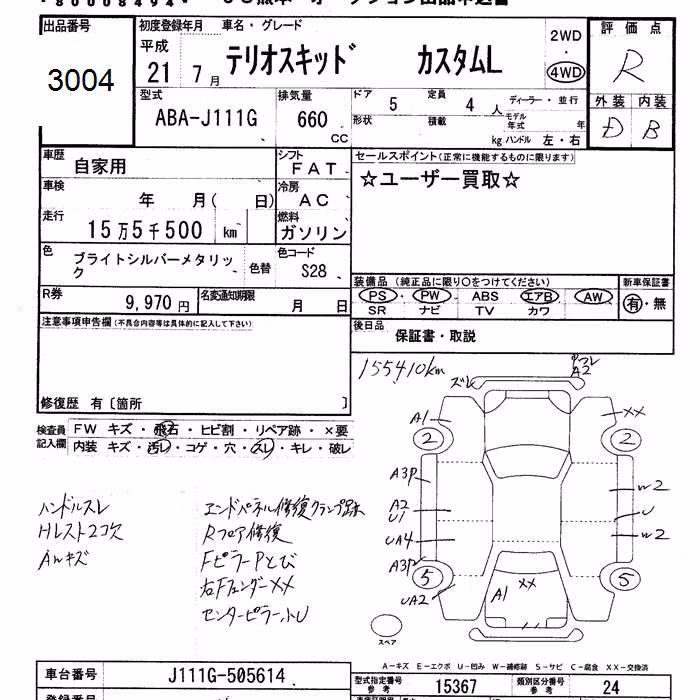 出品番号
3004
初度登録年月 車名・グレード
平成
21 7月 テリオスキッド カスタムL
2WD
・
4WD
評価点
R
外装 内装
D B
型式
ABA-J111G
排気量
660
CC
ドア 5 定員 4人 ディーラー・並行
形状 積載 kg
モデル年式 年
ハンドル 左・右
車歴
自家用
シフト
FAT
セールスポイント(正常に機能するものに限ります)
☆ユーザー買取☆
車検
年 月( 日)
冷房
AC
走行
15万5千500 km
燃料
ガソリン
色
ブライトシルバーメタリック
色替
色コード
S28
装備品 (純正品に限り○をつけてください)
PS・PW・ABS エアB AW
SR ナビ TV カワ
新車保証書
有・無
R券
9,970円
名変通知期限
月 日
後日品
保証書・取説
注意事項申告欄(不具合内容等は具体的に記入して下さい)
修復歴 有〔箇所 〕
検査員記入欄
FW キズ・飛石・ヒビ割・リペア跡・×要
内装 キズ・汚レ・コゲ・穴・スレ・キレ・破レ
155410km
ズレ
A2
A1
XX
2
2
A3P
A2
U1
UA4
A3P
UA2
W2
U
W2
5
5
A1
XX
スペア
ハンドルスレ
Hレスト2コ欠
AWキズ
エンドパネル修復クランプ跡
Rフロア修復
FピラーPとび
右Fフェンダー××
センターピラー小U
A-キズ E-エクボ U-凹み W-補修跡 S-サビ C-腐食 XX-交換済
車台番号
J111G-505614
型式指定番号
参考
15367
類別区分番号
参考
24